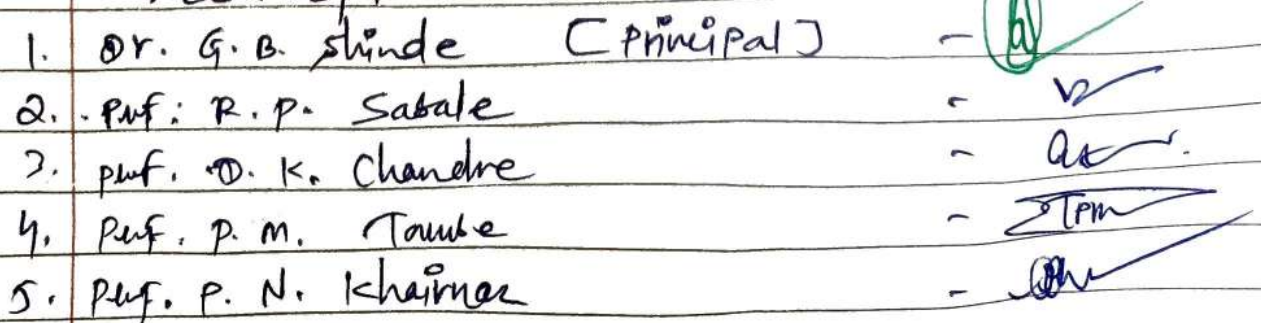 1. Dr. G. B. Shinde [Principal] -
2. Prof: R. P. Sabale -
3. Prof. D. K. Chandre -
4. Prof. P. M. Tambe -
5. Prof. P. N. Khairnar -